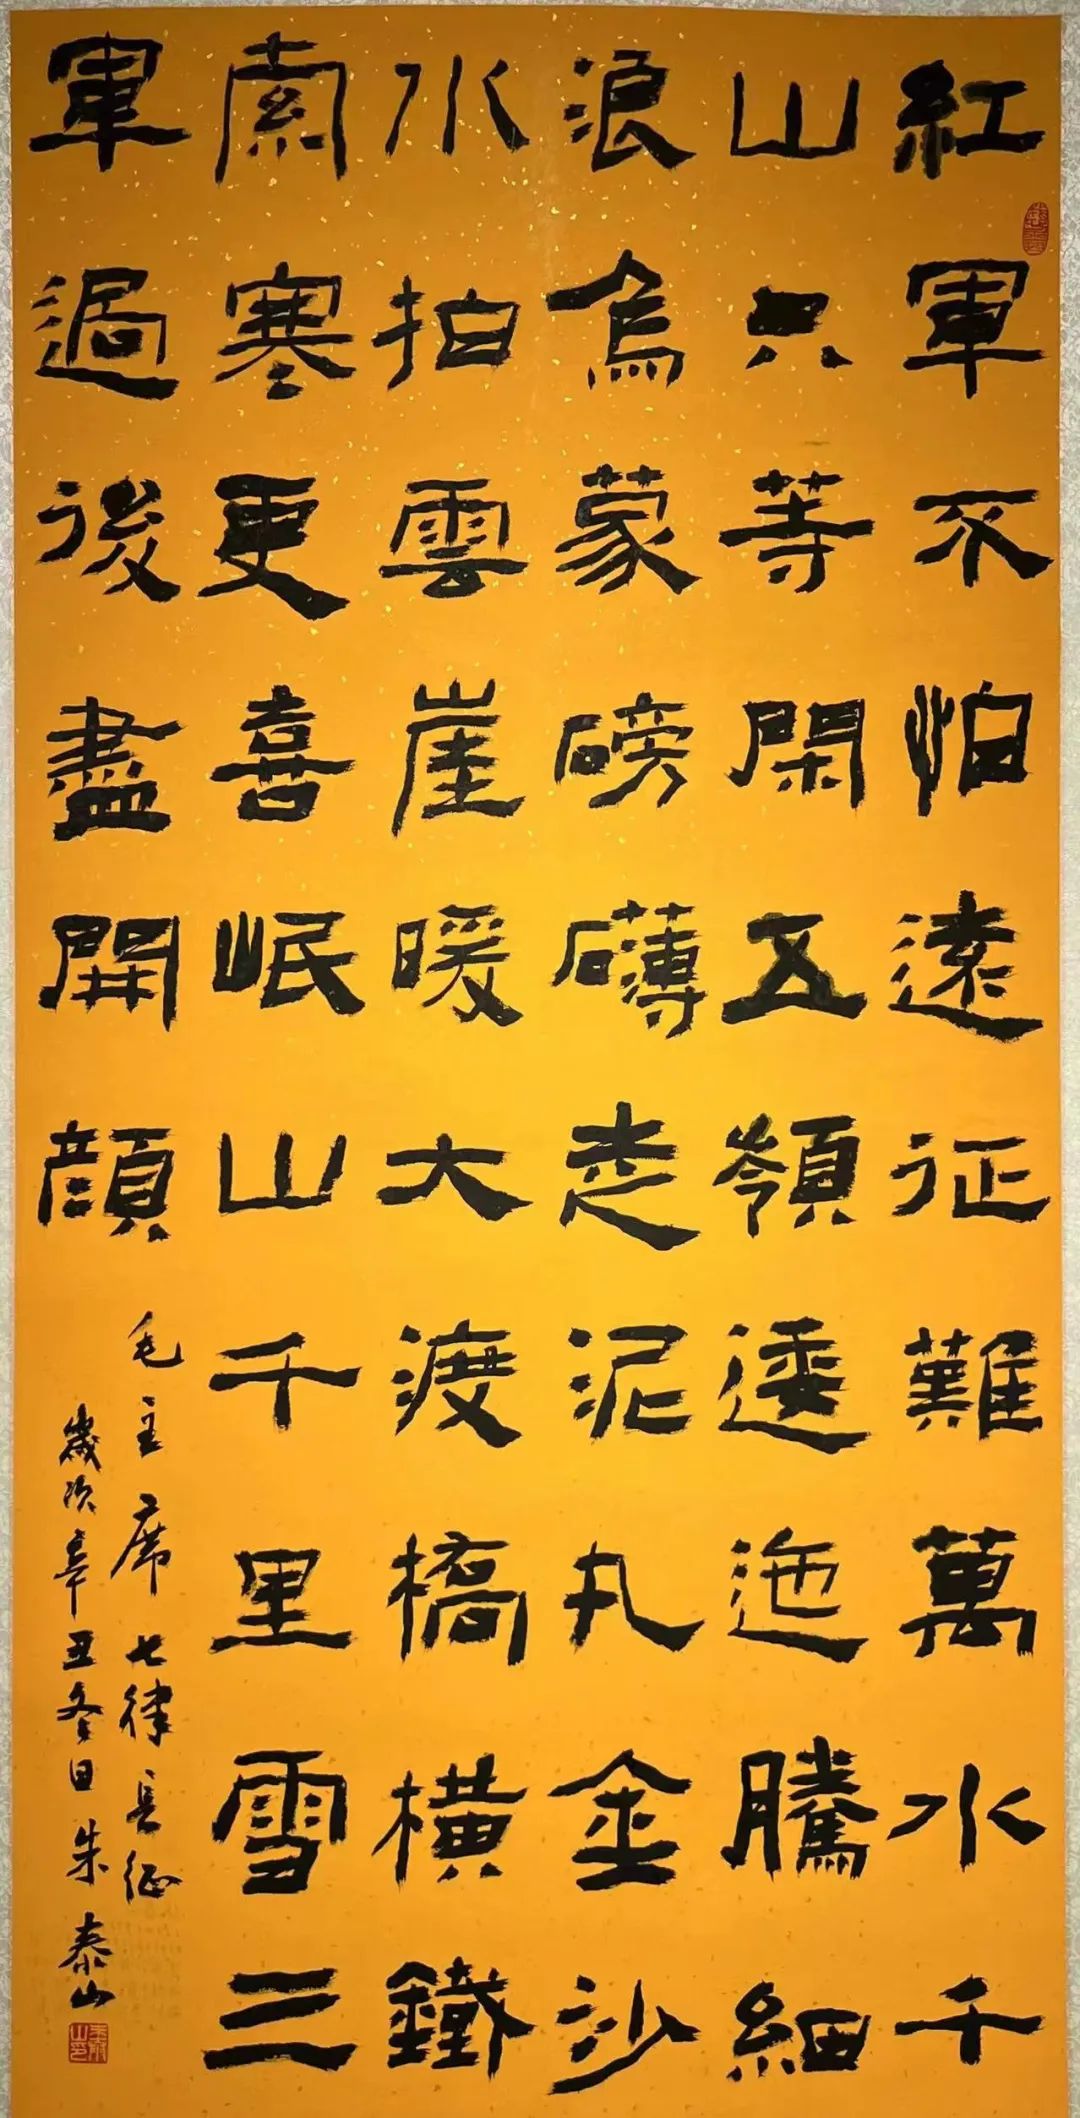 紅軍不怕遠征難萬水千
山只等閑五嶺逶迤騰細
浪烏蒙磅礴走泥丸金沙
水拍雲崖暖大渡橋橫鐵
索寒更喜岷山千里雪三
軍過後盡開顏
毛主席七律長征
歲次辛丑冬日朱泰山